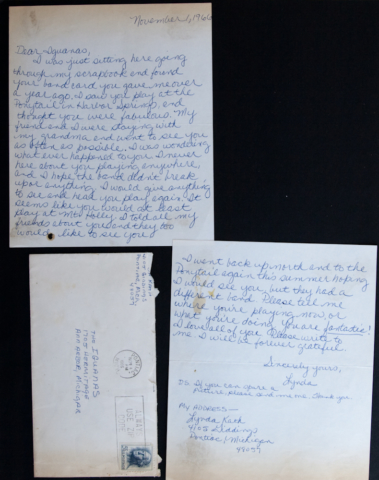 November, 1966
Dear Squanas,
I was just sitting here going
through my scrapbook and found
your band card you gave me over
a year ago. I saw you play at the
Ponytail in Harbor Springs, and
thought you were fabulous. My
friend and I were staying with
my grandma, and went to see you
as often as possible. I was wondering
what ever happened to you. I never
hear about you playing anywhere
and I hope the band didn't break
up or anything. I would give anything
to see and hear you play again. It
seems like you would at least
play at Mt. Holly. I told all my
friends about you and they too
would like to see you.
I went back up north and to the
Ponytail again this summer hoping
I would see you, but they had a
different band. Please tell me
where you're playing now, or
what you're doing. You are fantastic!
I love all of you. Please write to
me. I will be forever grateful.
Sincerely yours,
Lynda
P.S. If you can spare a
Picture please send me one. Thank you
My Address—
Lynda
Pontiac, Michigan
THE SQUANAS
ANN ARBOR, MICHIGAN